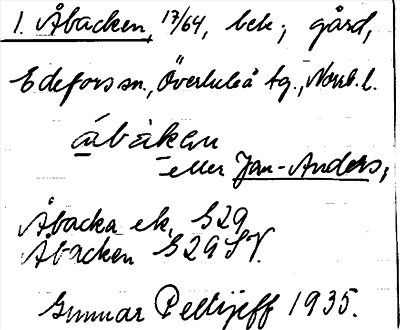 1. Åbacken, 17/64, bek., gård,
Edefors sn., Överluleå tg., Norrb. l.
åbàkan
eller Jan-Anders,
Åbacka ek. G29
Åbacken G29 SV.
Gunnar Pellijeff 1935.